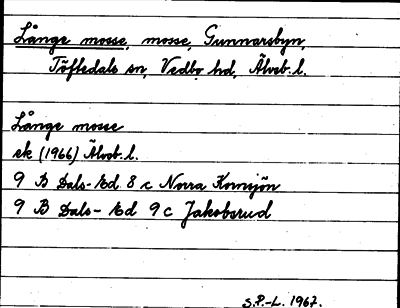 Långe mosse, mosse, Gunnarsbyn,
Töftedals sn, Vedbo hd, Älvsb. l.
Långe mosse
ek (1966) Älvsb. l.
9 B Dals-Ed 8 c Norra Kornsjön
9 B Dals-Ed 9 c Jakobsrud
S.P.-L. 1967.